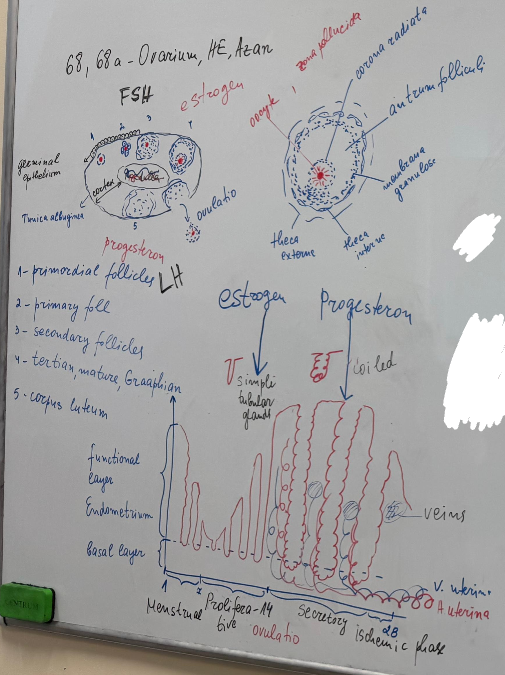 68, 68a - Ovarium, HE, Azan
FSH
estrogen
1
2
3
4
germinal
epithelium
cortex
Tunica albuginea
5
ovulatio
progesteron
LH
oocyte
zona pellucida
corona radiata
antrum folliculi
membrana
granulosa
theca
externe
theca
interne
1 - primordial follicles
2 - primary foll
3 - secondary follicles
4 - tertian, mature, Graaphian
5 - corpus luteum
estrogen
Progesteron
simple
tubular
glands
coiled
functional
layer
Endometrium
basal layer
veins
V. uterina
A. uterina
1
14
28
Menstrual
Prolifera-
tive
ovulatio
secretory
ischemic phase